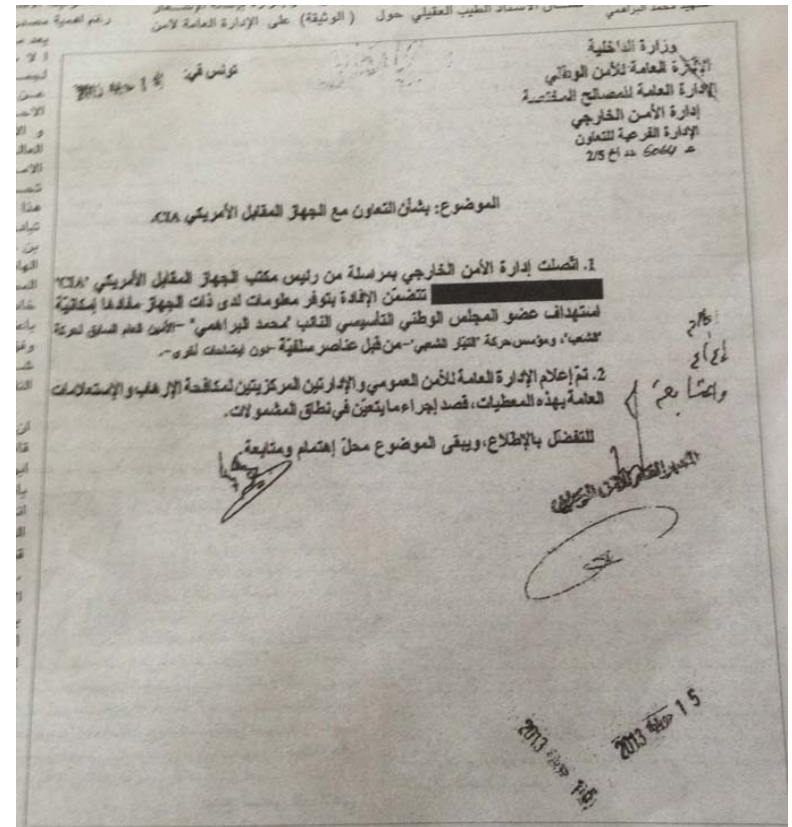 الأستاذ الطيب العقيلي حول (الوثيقة) على الإدارة العامة للأمن
محمد البراهمي
رغم أهمية
وزارة الداخلية
الإدارة العامة للأمن الوطني
الإدارة العامة للمصالح المختصة
إدارة الأمن الخارجي
الإدارة الفرعية للتعاون
2/5 6064
تونس في: 14 2013
الموضوع: بشأن التعاون مع الجهاز المقابل الأمريكي CIA.
1. اتّصلت إدارة الأمن الخارجي بمراسلة من رئيس مكتب الجهاز المقابل الأمريكي "CIA"
تتضمّن الإفادة بتوفر معلومات لدى ذات الجهاز مفادها إمكانيّة
استهداف عضو المجلس الوطني التأسيسي النائب "محمد البراهمي" -الأمين العام السابق لحركة
"الشعب"، ومؤسس حركة "التيّار الشعبي"- من قبل عناصر سلفيّة -دون إيضاحات أخرى-.
2. تمّ إعلام الإدارة العامة للأمن العمومي والإدارتين المركزيتين لمكافحة الإرهاب والإستعلامات
العامة بهذه المعطيات، قصد إجراء ما يتعيّن في نطاق المشمولات.
للتفضّل بالإطلاع، ويبقى الموضوع محلّ إهتمام ومتابعة.
والمتابعة
المدير العام للأمن الوطني
15 جويلية 2013
15 جويلية 2013